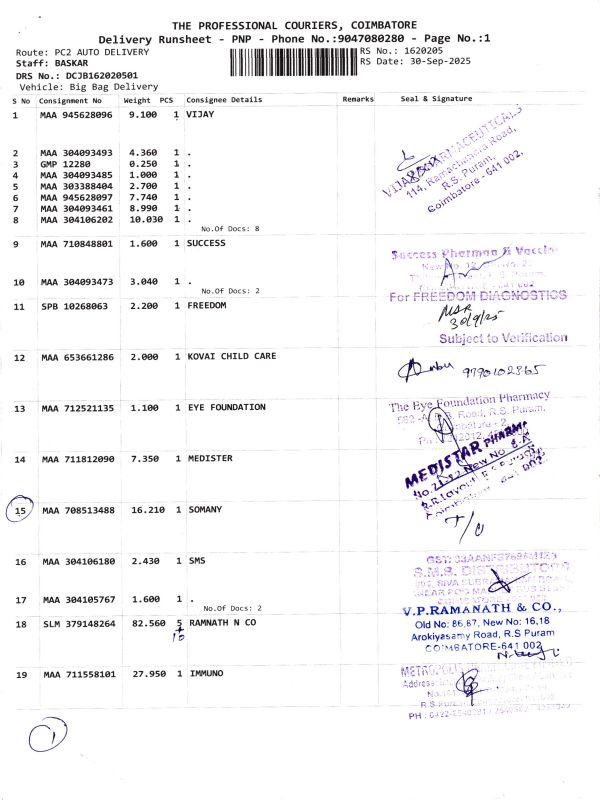 THE PROFESSIONAL COURIERS, COIMBATORE
Delivery Runsheet - PNP - Phone No.:9047080280 - Page No.:1
Route: PC2 AUTO DELIVERY
RS No.: 1620205
Staff: BASKAR
RS Date: 30-Sep-2025
DRS No.: DCJB162020501
Vehicle: Big Bag Delivery
S No Consignment No Weight PCS Consignee Details Remarks Seal & Signature
1 MAA 945628096 9.100 1 VIJAY
114, Ramachandra Road,
R.S. Puram,
Coimbatore - 641 002.
2 MAA 304093493 4.360 1 .
3 GMP 12280 0.250 1 .
4 MAA 304093485 1.000 1 .
5 MAA 303388404 2.700 1 .
6 MAA 945628097 7.740 1 .
7 MAA 304093461 8.990 1 .
8 MAA 304106202 10.030 1 .
No.Of Docs: 8
9 MAA 710848801 1.600 1 SUCCESS
Success Pharmaa & Vaccin
10 MAA 304093473 3.040 1 .
No.Of Docs: 2
For FREEDOM DIAGNOSTICS
11 SPB 10268063 2.200 1 FREEDOM
30/9/25
Subject to Verification
12 MAA 653661286 2.000 1 KOVAI CHILD CARE
9790102865
13 MAA 712521135 1.100 1 EYE FOUNDATION
The Eye Foundation Pharmacy
Road, R.S. Puram,
14 MAA 711812090 7.350 1 MEDISTER
MEDISTAR PHARMA
15 MAA 708513488 16.210 1 SOMANY
T/O
16 MAA 304106180 2.430 1 SMS
S.M.S. DISTRIBUTORS
17 MAA 304105767 1.600 1 .
No.Of Docs: 2
18 SLM 379148264 82.560 5 RAMNATH N CO
10
V.P.RAMANATH & CO.,
Old No: 86,87, New No: 16,18
Arokiyasamy Road, R.S Puram
COIMBATORE-641 002
19 MAA 711558101 27.950 1 IMMUNO
1